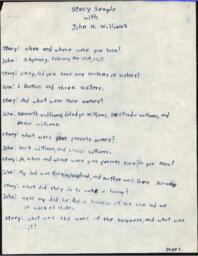 Stacy Seagle
with
John H. Williams
Stacy: when and where were you born?
John: February the 21st,
Stacy: okay, did you have any brothers or sisters?
John: 1 Brother and three sisters.
Stacy: And what were their names?
John: Kenneth Williams, Gladys Williams, Gertrude Williams, and
Grace Williams.
Stacy: what were your parents names?
John: Jack Williams, and Williams.
Stacy: oh, when and where were your parents born (do you know)?
John: My dad was and mother was
Stacy: what did they do to make a living?
John: well my dad, he had a business of his own and we
all worked
Stacy: what was the name of the business, and what was
it?
Page 1